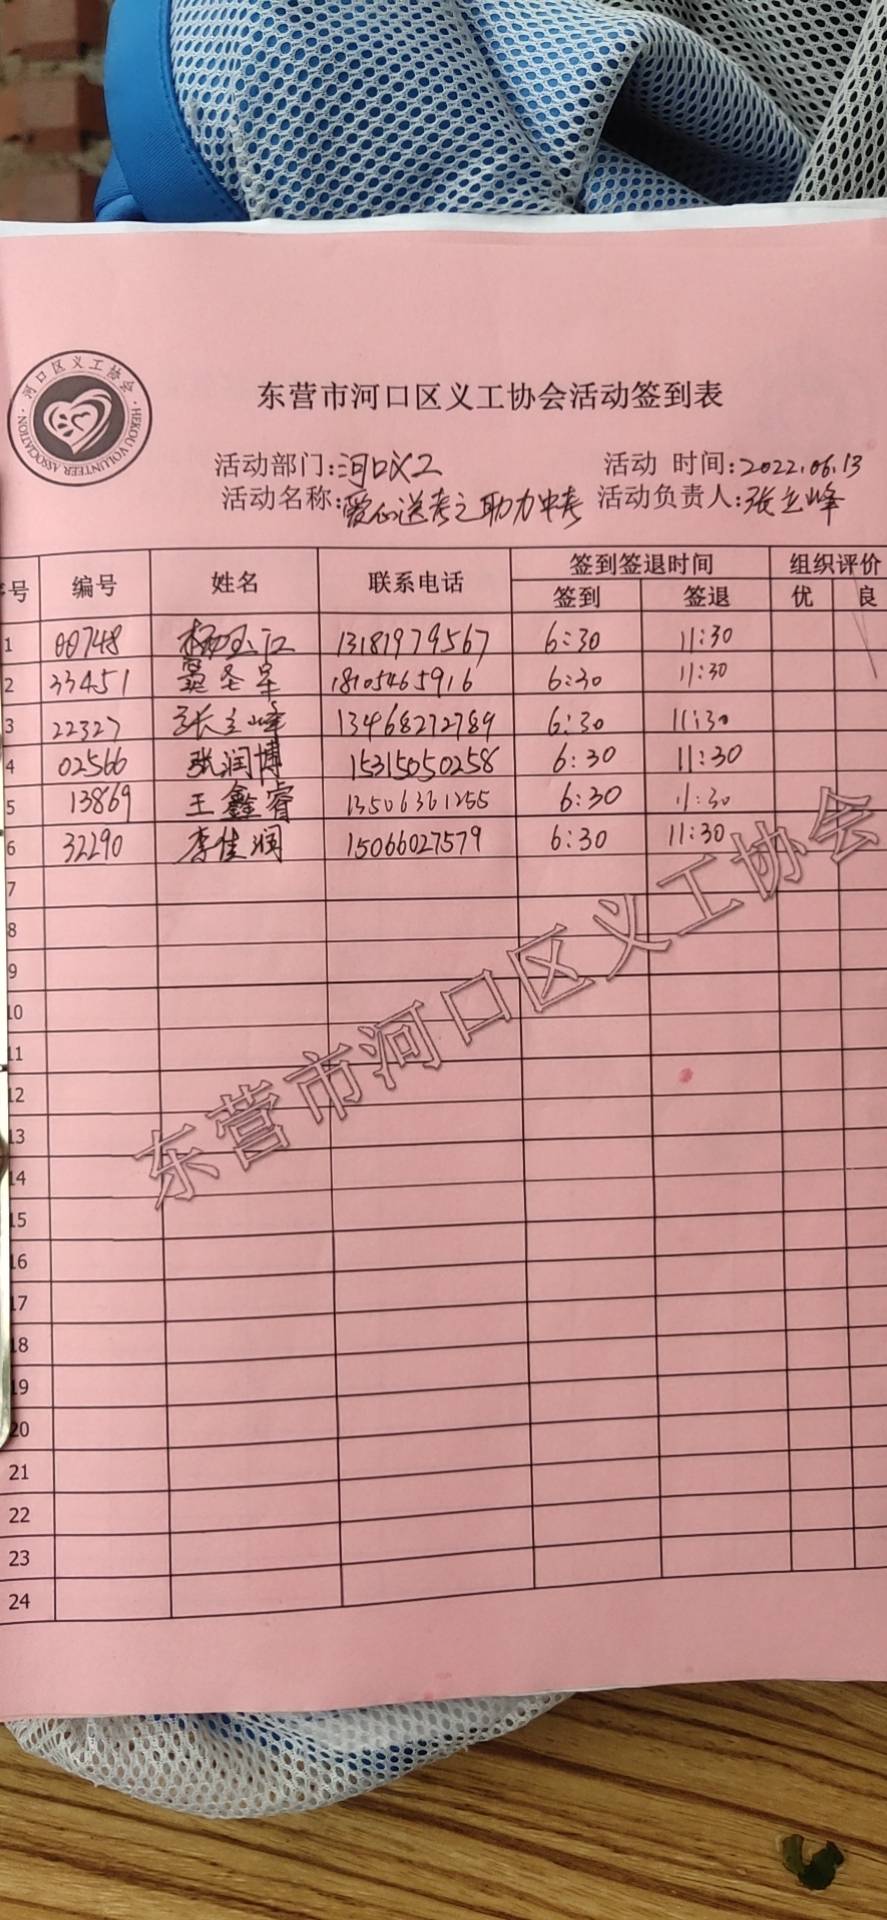 河口区义工协会
HEKOU VOLUNTEER ASSOCIATION
东营市河口区义工协会活动签到表
活动部门:河口义工 活动 时间:2022.06.13
活动名称:爱心送考之助力中考 活动负责人:张立峰
序号 编号 姓名 联系电话 签到签退时间 组织评价
签到 签退 优 良
1 00748 杨玉江 13181979567 6:30 11:30
2 33451 圣军 18105465916 6:30 11:30
3 22327 张立峰 13468272789 6:30 11:30
4 02566 张润博 15315050258 6:30 11:30
5 13869 王鑫睿 13506361255 6:30 11:30
6 32290 李佳润 15066027579 6:30 11:30
7
8
9
10
11
12
13
14
15
16
17
18
19
20
21
22
23
24
东营市河口区义工协会